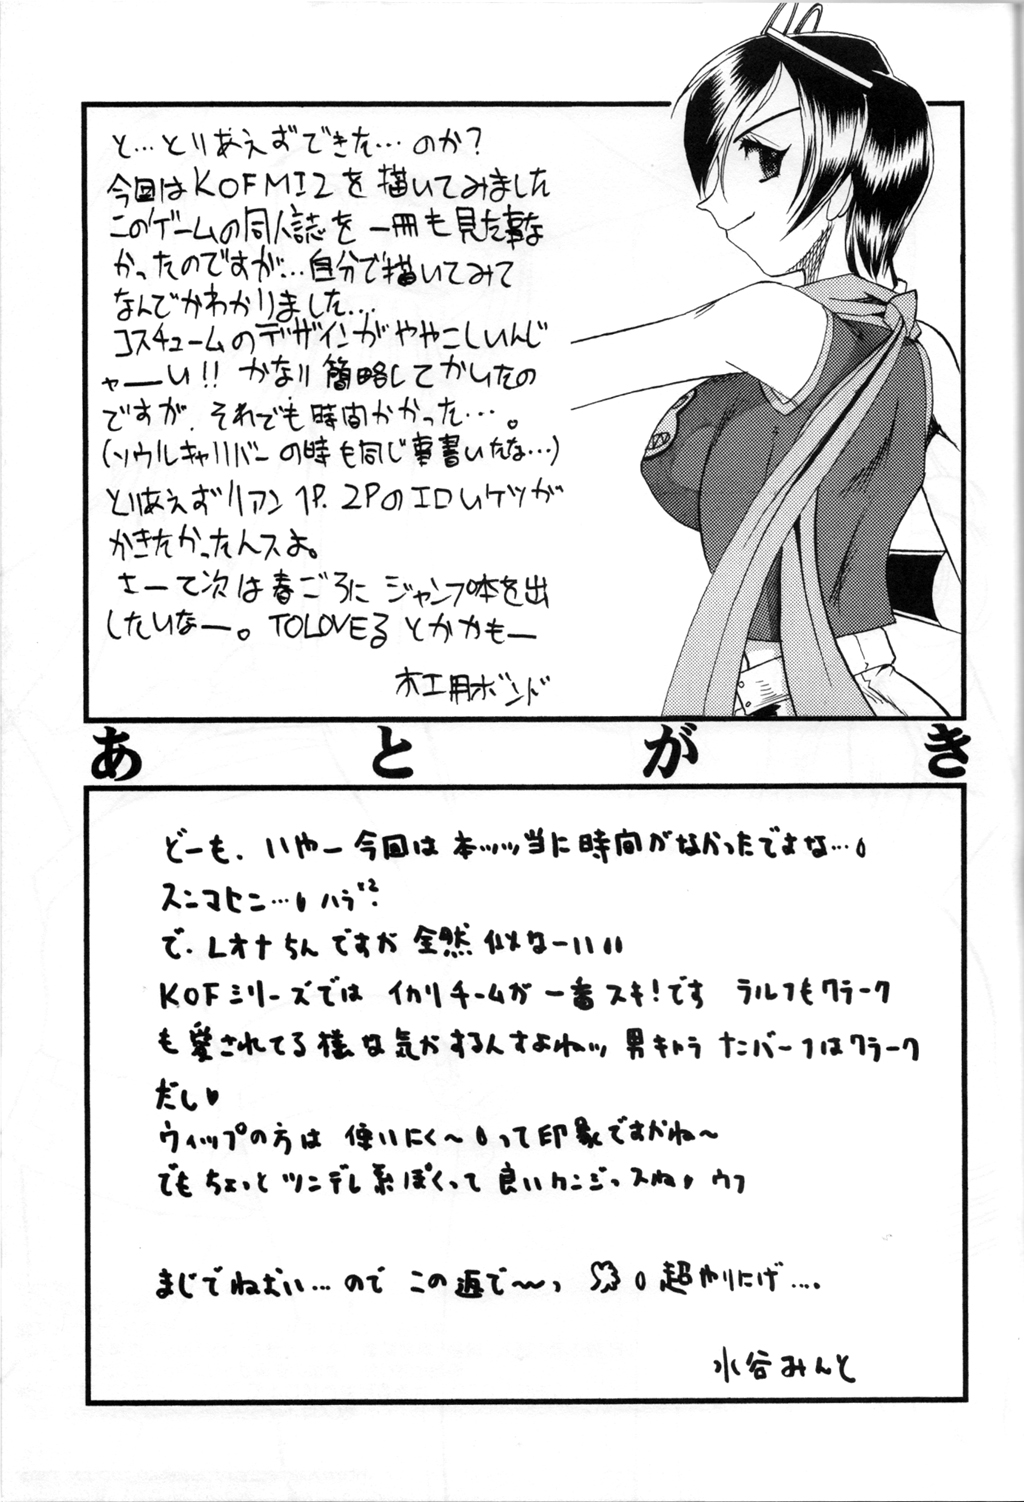 と…とりあえずできた…のか?
今回はKOFMI2を描いてみました
このゲームの同人誌を一冊も見た事な
かったのですが…自分で描いてみて
なんでかわかりました…
コスチュームのデザインがややこしいんじ
ゃーい!! かなり簡略してかいたの
ですが、それでも時間かかった…。
(ソウルキャリバーの時も同じ事書いたな…)
とりあえずリアン1P.2Pのエロいケツがかきたかったんスよ。
さーて次は春ごろにジャンプ本を出
したいなー。TOLOVEるとかかもー
木工用ボンド
あとがき
どーも、いやー今回は本ッッ当に時間がなかったですよな…
スンマヒン…
で、レオナちんですが全然似なーい
KOFシリーズではイカリチームが一番スキ!です ラルフもクラーク
も愛されてる様な気がするんすよねッ 男キャラナンバー1はクラーク
だし♥
ウィップの方は使いにく〜って印象ですがね〜
でもちょっとツンデレ系ぽくって良いカンジっスね ウフ
まじでねむい…のでこの辺で〜っ 超やりにげ….
水谷みんと